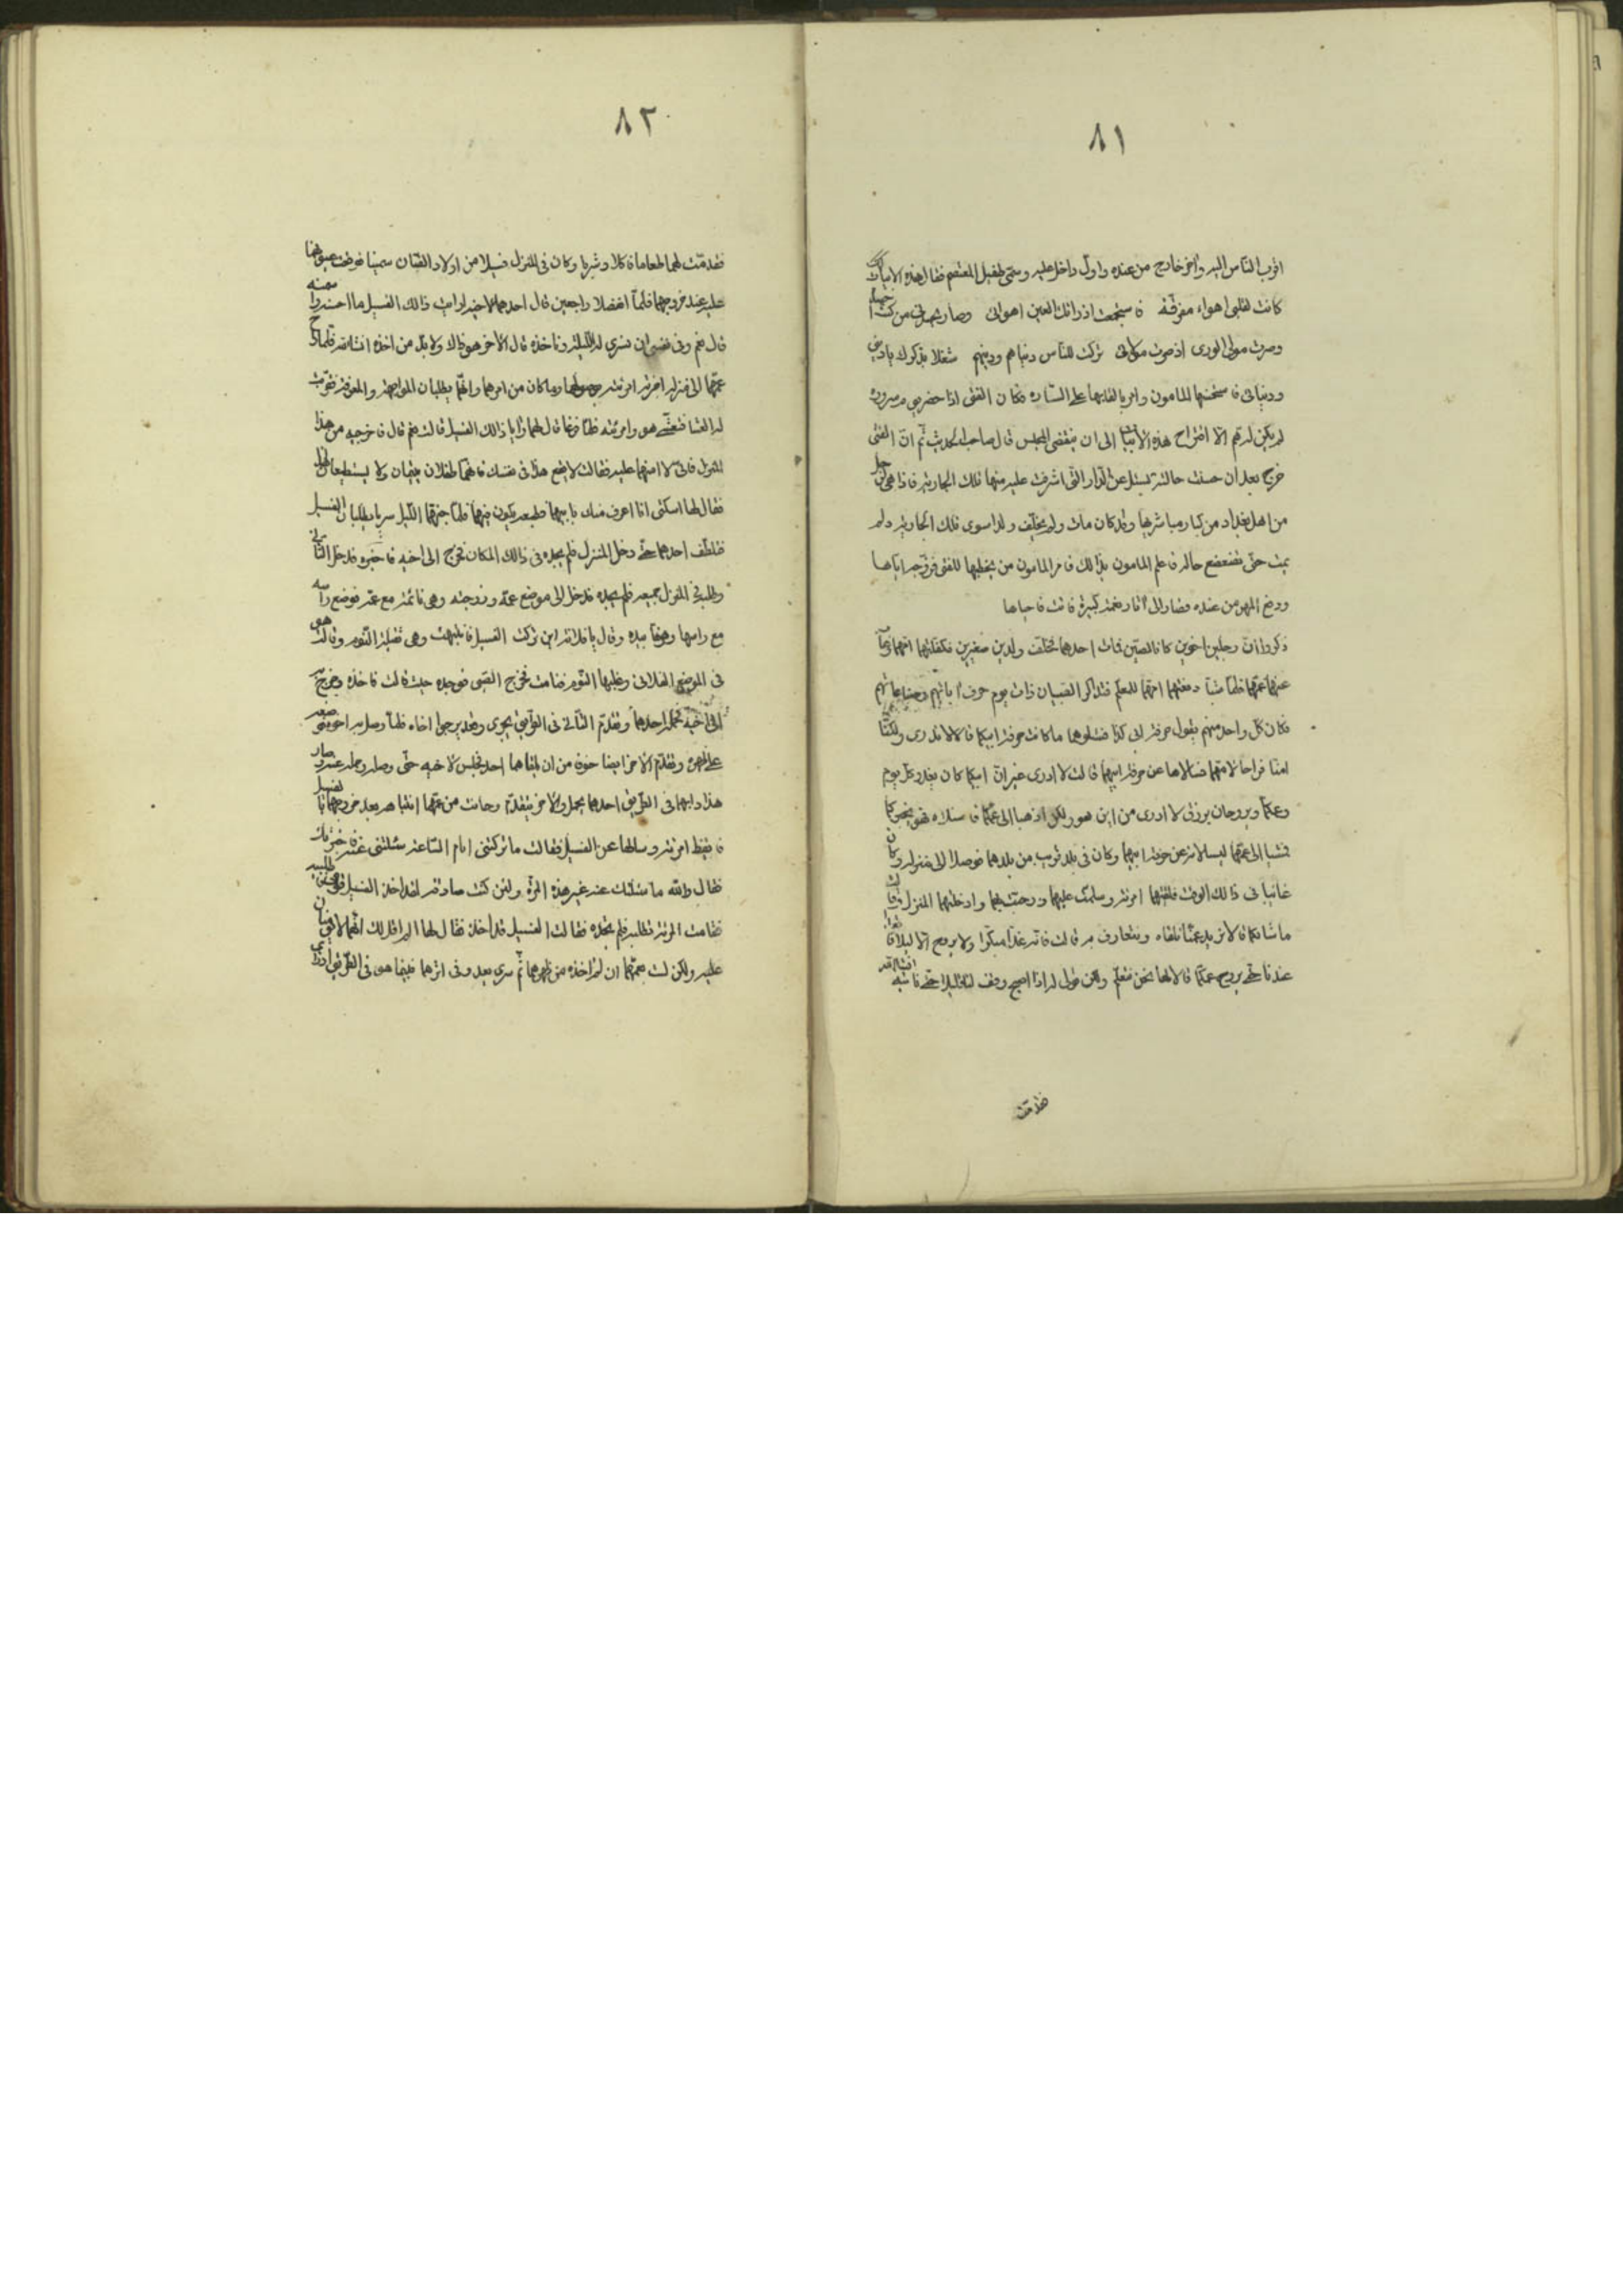 ٨١
اقرب الناس اليه واخر خارج من عنده واول داخل عليه وسمى طفيل المعتصم فقال هذه الابيات
كانت لقلبي اهواء مفرقة فاستجمعت اذ راتك العين اهوائي وصار يحسدني من كنت احسده
وصرت مولى الورى اذ صرت مولائي تركت للناس دنياهم ودينهم شغلا بذكرك يا ديني
ودنيائي فاستحسنها المامون وامر بالقائها على الستارة فكان الفتى اذا حضر يوم سروره
لم يكن لهم الا اقتراح هذه الابيات الى ان ينقضي المجلس قال صاحب الحديث ثم ان الفتى
خرج بعد ان حسنت حالته يسئل عن الدار التي اشرفت عليه منها تلك الجارية فاذا هي لرجل
من اهل بغداد من كبار مباشريها وقد كان مات ولم يخلف ولدا سوى تلك الجارية ولم
يمت حتى تضعضع حاله فاعلم المامون بذالك فامر المامون من يخطبها للفتى فزوجه اياها
ودفع المهر من عنده وصار الى نعمة كبيرة
ذكروا ان رجلين اخوين كانا لصين فمات احدهما وخلف ولدين صغيرين فكفلتهما امهما
عنهما عمهما فلما شبا دفعتهما امهما للمعلم فتذاكر الصبيان ذات يوم حرف ابائهم
فكان كل واحد منهم يقول حرفة ابي كذا فسئلوهما ما كانت حرفة ابيكما فقالا لا ندري ولكنا
امنا فراحا لامهما فسالاها عن حرفة ابيهما قالت لا ادري غير ان ابيكما كان يغدو كل يوم
وعمكما ويروحان برزق لا ادري من اين هو ولكن اذهبا الى عمكما فاسئلاه فهو يخبركما
فمشيا الى عمهما ليسالانه عن حرفة ابيهما وكان في بلد قريب من بلدهما فوصلا الى منزله وكان
غائبا في ذالك الوقت فلقتهما امرئته وسلمت عليهما ورحبت بهما وادخلتهما المنزل وقالت
ما شانكما قالا نريد عمنا نلقاه ونتعارف به قالت فانه غدا مبكرا ولا يروح الا ليلا
عندنا حتى يروح عمكما قالا لها نحن نتعلم ولكن قولي له اذا اصبح وقف لنا قليلا حتى ناتيه انشاءلله
فقدمت
٨٢
فقدمت لهما طعاما فاكلا وشربا وكان في المنزل فسيلا من اولاد الضان سمينا فوقعت عيونهما
عليه عند خروجهما فلما انفصلا راجعين قال احدهما لاخيه ارايت ذالك الفسيل ما احسنه
قال نعم وفي نفسي ان نسري له الليلة وناخذه قال الاخر هو ذاك ولا بد من اخذه انشاءلله فلما راح
عمهما الى منزله اخبرته امرئته بوصولهما وما كان من امرهما وانهما يطلبان المواجهة والمعرفة فقربت
له العشا فتعشى هو وامرئته فلما فرغا قال لهما رايا ذالك الفسيل قالت نعم قال فاخرجيه من هذا
المنزل فاني لا امنهما عليه فقالت لا يقع هذا في نفسك فانهما طفلان يتيمان ولا يستطيعان
فقال لها اسكتي انا اعرف منك بابيهما وطبعه يكون فيهما فلما جنهما الليل سريا يطلبان الفسيل
فتلطف احدهما حتى دخل المنزل فلم يجده في ذالك المكان فخرج الى اخيه فاخبره فدخل الثاني
وطلبه في المنزل جميعه فلم يجده فدخل الى موضع عمه وزوجته وهي نائمة مع عمه فوضع راسه
مع راسها وهزها بيده وقال يا فلانة اين تركت الفسيل فانتبهت وهي ثقيلة النوم وقالت هو
في الموضع الفلاني وغلبها النوم فنامت فخرج الصبي فوجده حيث قالت فاخذه وخرج به
الى اخيه فحمله احدهما وتقدم الثاني في الطريق يجري وقعد يرجوا اخاه فلما وصل به اخوه
على ظهره وتقدم الاخر ايضا خوفا من ان يلقاهما احد فجلس لاخيه حتى وصله وحمله عنه وصار
هذا دابهما في الطريق احدهما يحمل والاخر يتقدم وحانت من عمهما انتباهه بعد خروجهما بالفسيل
فايقظ امرئته وسالها عن الفسيل فقالت ما تركتني انام الساعة سئلتني عنه فاخبرتك
فقال والله ما سئلتك عنه غير هذه المرة ولئن كنت صادقة لقد اخذ الفسيل فقومي
فقامت المرئة تطلبه فلم تجده فقالت الفسيل قد اخذ فقال لها الم اقل لك انهما لا يؤمنان
عليه ولكن لست عمهما ان لم اخذه من ظهرهما ثم سرى بعد وفي اثرهما فبينما هو في الطريق